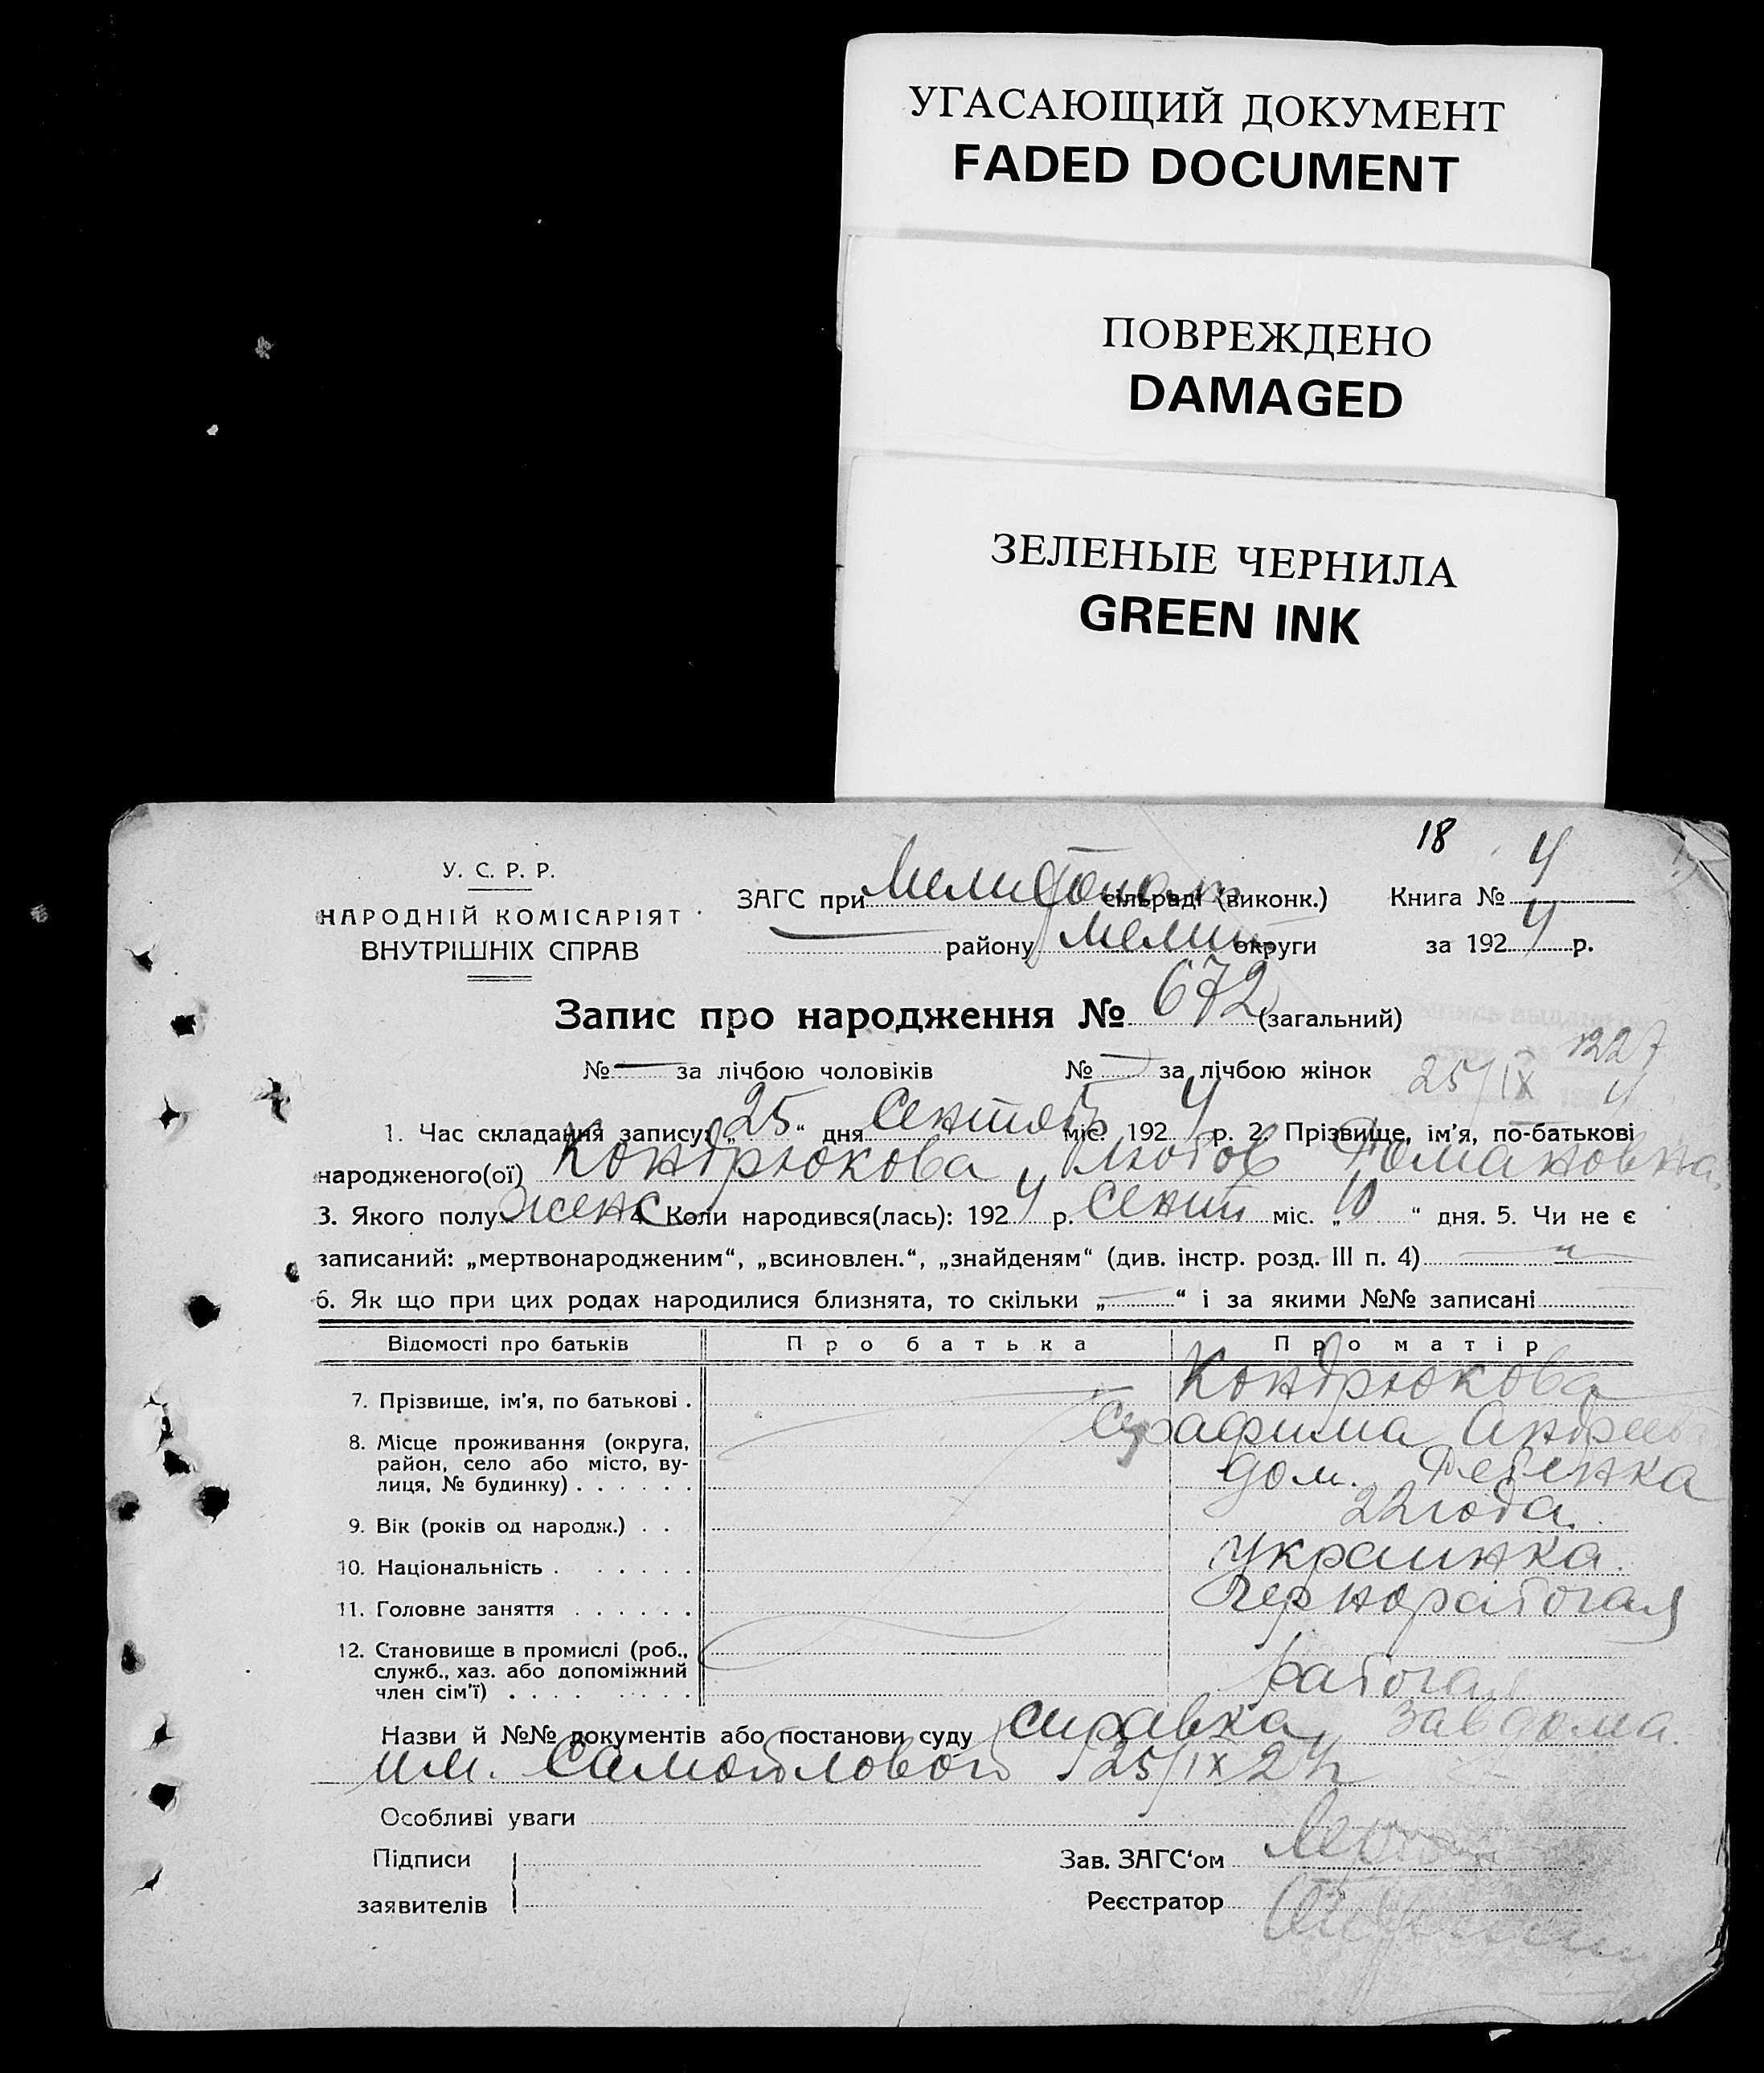 УГАСАЮЩИЙ ДОКУМЕНТ
FADED DOCUMENT
ПОВРЕЖДЕНО
DAMAGED
ЗЕЛЕНЫЕ ЧЕРНИЛА
GREEN INK
18
У. С. Р. Р.
НАРОДНІЙ КОМІСАРІЯТ
ВНУТРІШНІХ СПРАВ
ЗАГС при сільраді (виконк.) Книга № 4
району Мелит округи за 1924 р.
Запис про народження № 672 (загальний)
№ — за лічбою чоловіків № — за лічбою жінок
1227
25/IX 4
1. Час складання запису: „25“ дня Сентяб міс. 1924 р. 2. Прізвище, ім'я, по-батькові
народженого(ої) Кондрюкова Любов Романовна
3. Якого полу женс 4. Коли народився(лась): 1924 р. Сент міс. „10“ дня. 5. Чи не є
записаний: „мертвонародженим“, „всиновлен.“, „знайденям“ (див. інстр. розд. III п. 4) — „ —
6. Як що при цих родах народилися близнята, то скільки „—“ і за якими №№ записані
Відомості про батьків Про батька Про матір
7. Прізвище, ім'я, по батькові . Кондрюкова
Серафима Андреев
8. Місце проживання (округа,
район, село або місто, ву-
лиця, № будинку) . . . . . . дом. Ребенка
9. Вік (років од народж.) . . 22 года.
10. Національність . . . . . . Украинка.
11. Головне заняття . . . . . . Чернорабочая
12. Становище в промислі (роб.,
служб., хаз. або допоміжний
член сім'ї) . . . . . . . . рабочая
Назви й №№ документів або постанови суду Справка Завдома
им. Самойловой 25/IX 24
Особливі уваги
Підписи
заявителів
Зав. ЗАГС'ом
Реєстратор